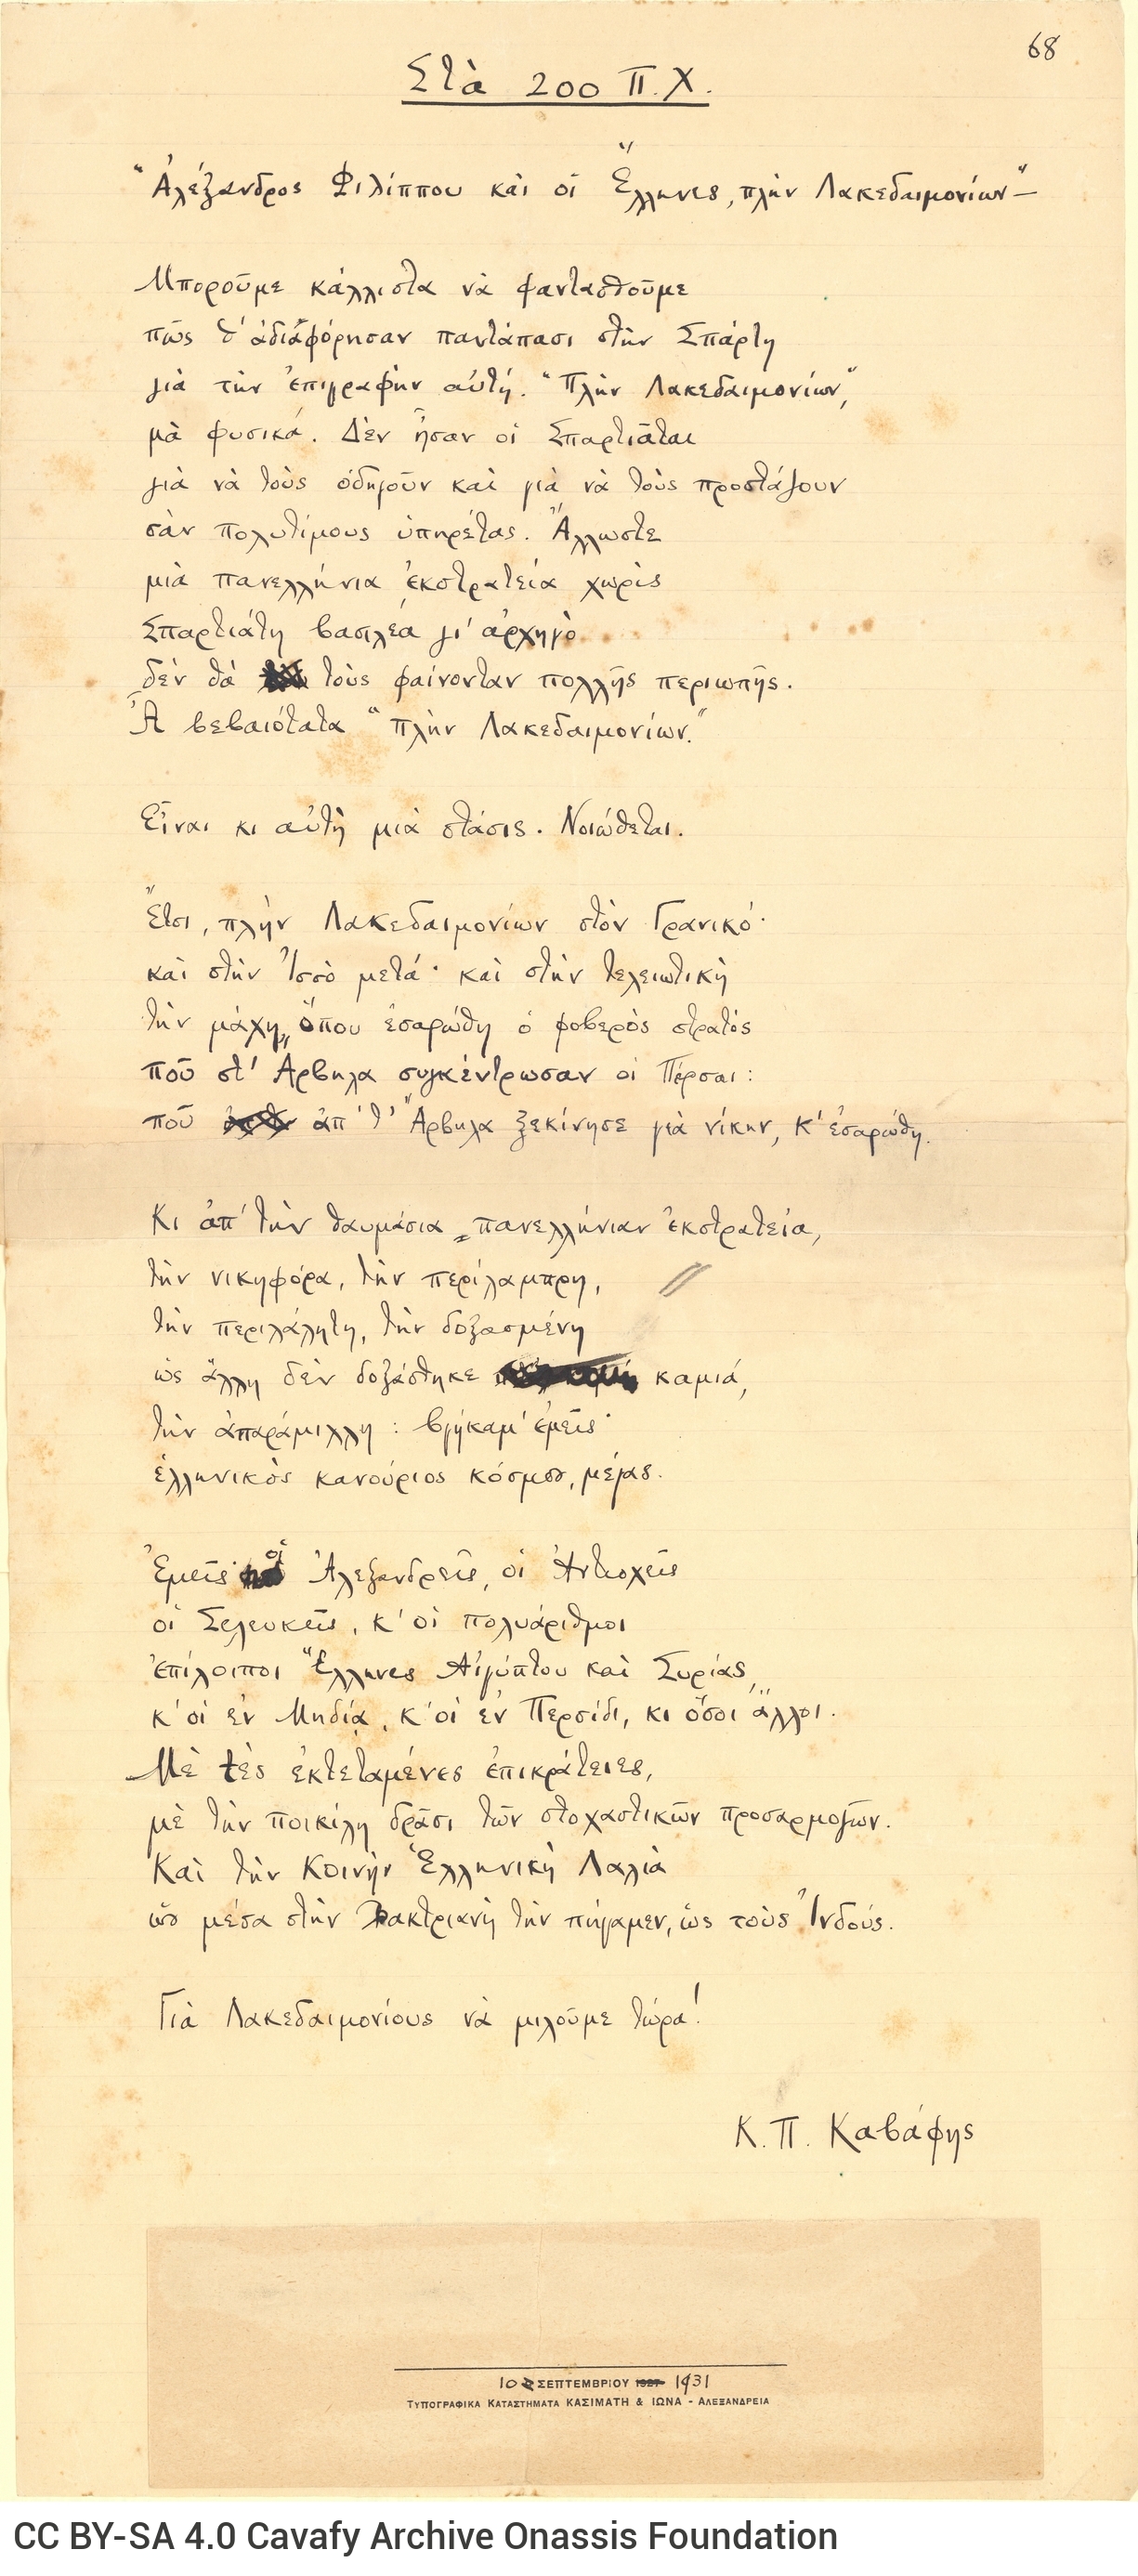 68
Στὰ 200 Π.Χ.
“Ἀλέξανδρος Φιλίππου καὶ οἱ Ἕλληνες, πλὴν Λακεδαιμονίων”—
Μποροῦμε κάλλιστα νὰ φαντασθοῦμε
πῶς θ’ ἀδιαφόρησαν παντάπασι στὴν Σπάρτη
γιὰ τὴν ἐπιγραφὴν αὐτή. “Πλὴν Λακεδαιμονίων”,
μὰ φυσικά. Δὲν ἦσαν οἱ Σπαρτιᾶται
γιὰ νὰ τοὺς ὁδηγοῦν καὶ γιὰ νὰ τοὺς προστάζουν
σὰν πολυτίμους ὑπηρέτας. Ἄλλωστε
μιὰ πανελλήνια ἐκστρατεία χωρὶς
Σπαρτιάτη βασιλέα γι’ ἀρχηγὸ
δὲν θὰ τοὺς φαίνονταν πολλῆς περιωπῆς.
Ἆ βεβαιότατα “πλὴν Λακεδαιμονίων.”
Εἶναι κι αὐτὴ μιὰ στάσις. Νοιώθεται.
Ἔτσι, πλὴν Λακεδαιμονίων στὸν Γρανικό·
καὶ στὴν Ἰσσὸ μετά· καὶ στὴν τελειωτικὴ
τὴν μάχη, ὅπου ἐσαρώθη ὁ φοβερὸς στρατὸς
ποῦ στ’ Ἄρβηλα συγκέντρωσαν οἱ Πέρσαι:
ποῦ ἀπ’ τ’ Ἄρβηλα ξεκίνησε γιὰ νίκην, κ’ ἐσαρώθη.
Κι ἀπ’ τὴν θαυμάσια πανελλήνιαν ἐκστρατεία,
τὴν νικηφόρα, τὴν περίλαμπρη,
τὴν περιλάλητη, τὴν δοξασμένη
ὡς ἄλλη δὲν δοξάσθηκε καμιά,
τὴν ἀπαράμιλλη: βγήκαμ’ ἐμεῖς·
ἑλληνικὸς καινούριος κόσμος, μέγας.
Ἐμεῖς· οἱ Ἀλεξανδρεῖς, οἱ Ἀντιοχεῖς
οἱ Σελευκεῖς, κ’ οἱ πολυάριθμοι
ἐπίλοιποι Ἕλληνες Αἰγύπτου καὶ Συρίας,
κ’ οἱ ἐν Μηδίᾳ, κ’ οἱ ἐν Περσίδι, κι ὅσοι ἄλλοι.
Μὲ τὲς ἐκτεταμένες ἐπικράτειες,
μὲ τὴν ποικίλη δρᾶσι τῶν στοχαστικῶν προσαρμογῶν.
Καὶ τὴν Κοινὴν Ἑλληνικὴ Λαλιὰ
ὣς μέσα στὴν Βακτριανὴ τὴν πήγαμεν, ὣς τοὺς Ἰνδούς.
Γιὰ Λακεδαιμονίους νὰ μιλοῦμε τώρα!
Κ. Π. Καβάφης
10 ΣΕΠΤΕΜΒΡΙΟΥ 1927 1931
ΤΥΠΟΓΡΑΦΙΚΑ ΚΑΤΑΣΤΗΜΑΤΑ ΚΑΣΙΜΑΤΗ & ΙΩΝΑ - ΑΛΕΞΑΝΔΡΕΙΑ
CC BY-SA 4.0 Cavafy Archive Onassis Foundation